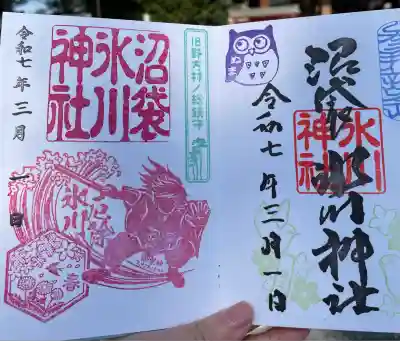 沼袋
氷川
神社
令和七年三月一日
旧野方村ノ総鎮守
氷川
春
ぬま
沼袋氷川神社
氷川
神社
令和七年三月一日